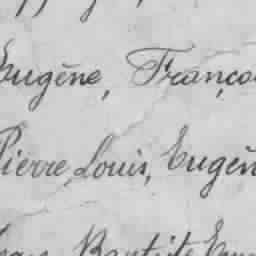 Eugène, Franço
Pierre Louis, Eugèn
Baptiste